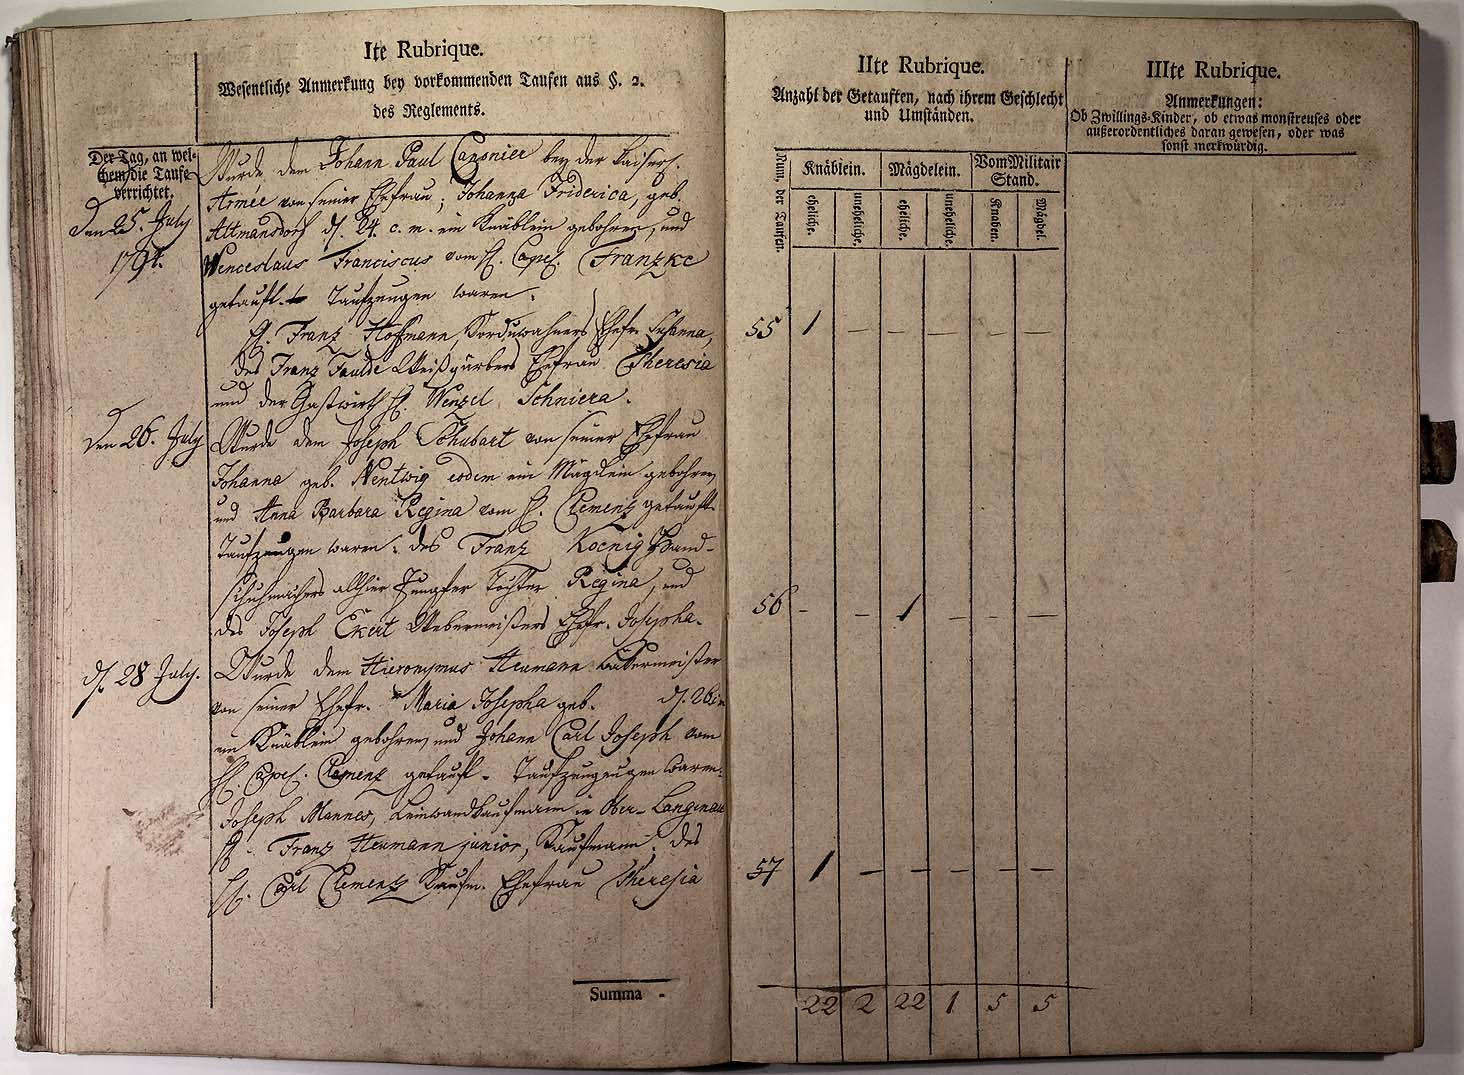 Ite Rubrique.
Wesentliche Anmerkung bey vorkommenden Taufen aus §. 2.
des Reglements.
Der Tag, an wel-
chem die Taufe
verrichtet.
Den 25. July
1794.
Wurde dem Johann Paul Canonier bey der Kaiserl.
Armée von seiner Ehefrau, Johanna Friderica, geb.
Altmansdorf d. 24. c. m. ein Knäblein gebohren, und
Wenceslaus Franciscus vom H. Capel. Franzke
getauft. Taufzeugen waren.
H. Franz Hoffmann, Korduwahners Ehefr. Susanna,
des Franz Faulde Weißgärbers Ehefrau Theresia
und der Gastwirth H. Wenzel Schniera.
Den 26. July
Wurde dem Joseph Schubart von seiner Ehefrau
Johanna geb. Nentwig eodem ein Mägdlein gebohren,
und Anna Barbara Regina vom H. Clementz getauft.
Taufzeugen waren. des Franz Koenig Hand-
schuhmachers allhier Jungfer Tochter Regina, und
des Joseph Ekert Webermeisters Ehefr. Josepha.
d. 28 July.
Wurde dem Hieronymus Heumann
von seiner Ehefr. Maria Josepha geb. d. 26
ein Knäblein gebohren, und Johann Carl Joseph vom
H. Capel. Clementz getauft. Taufzeugeugen waren.
Joseph Mannes, Leinwandkaufmann in Ober-Langenau
H. Franz Heumann junior, Kaufmann. des
H. Carl Clementz Kaufm. Ehefrau Theresia
Summa -
IIte Rubrique.
Anzahl der Getauften, nach ihrem Geschlecht
und Umständen.
Num. der Taufen.
Knäblein. Mägdelein. Vom Militair
Stand.
eheliche. uneheliche. eheliche. uneheliche. Knaben. Mägdel.
55 1 - - - - -
56 - - 1 - - -
57 1 - - - - -
22 2 22 1 5 5
IIIte Rubrique.
Anmerkungen:
Ob Zwillings-Kinder, ob etwas monstreuses oder
außerordentliches daran gewesen, oder was
sonst merkwürdig.